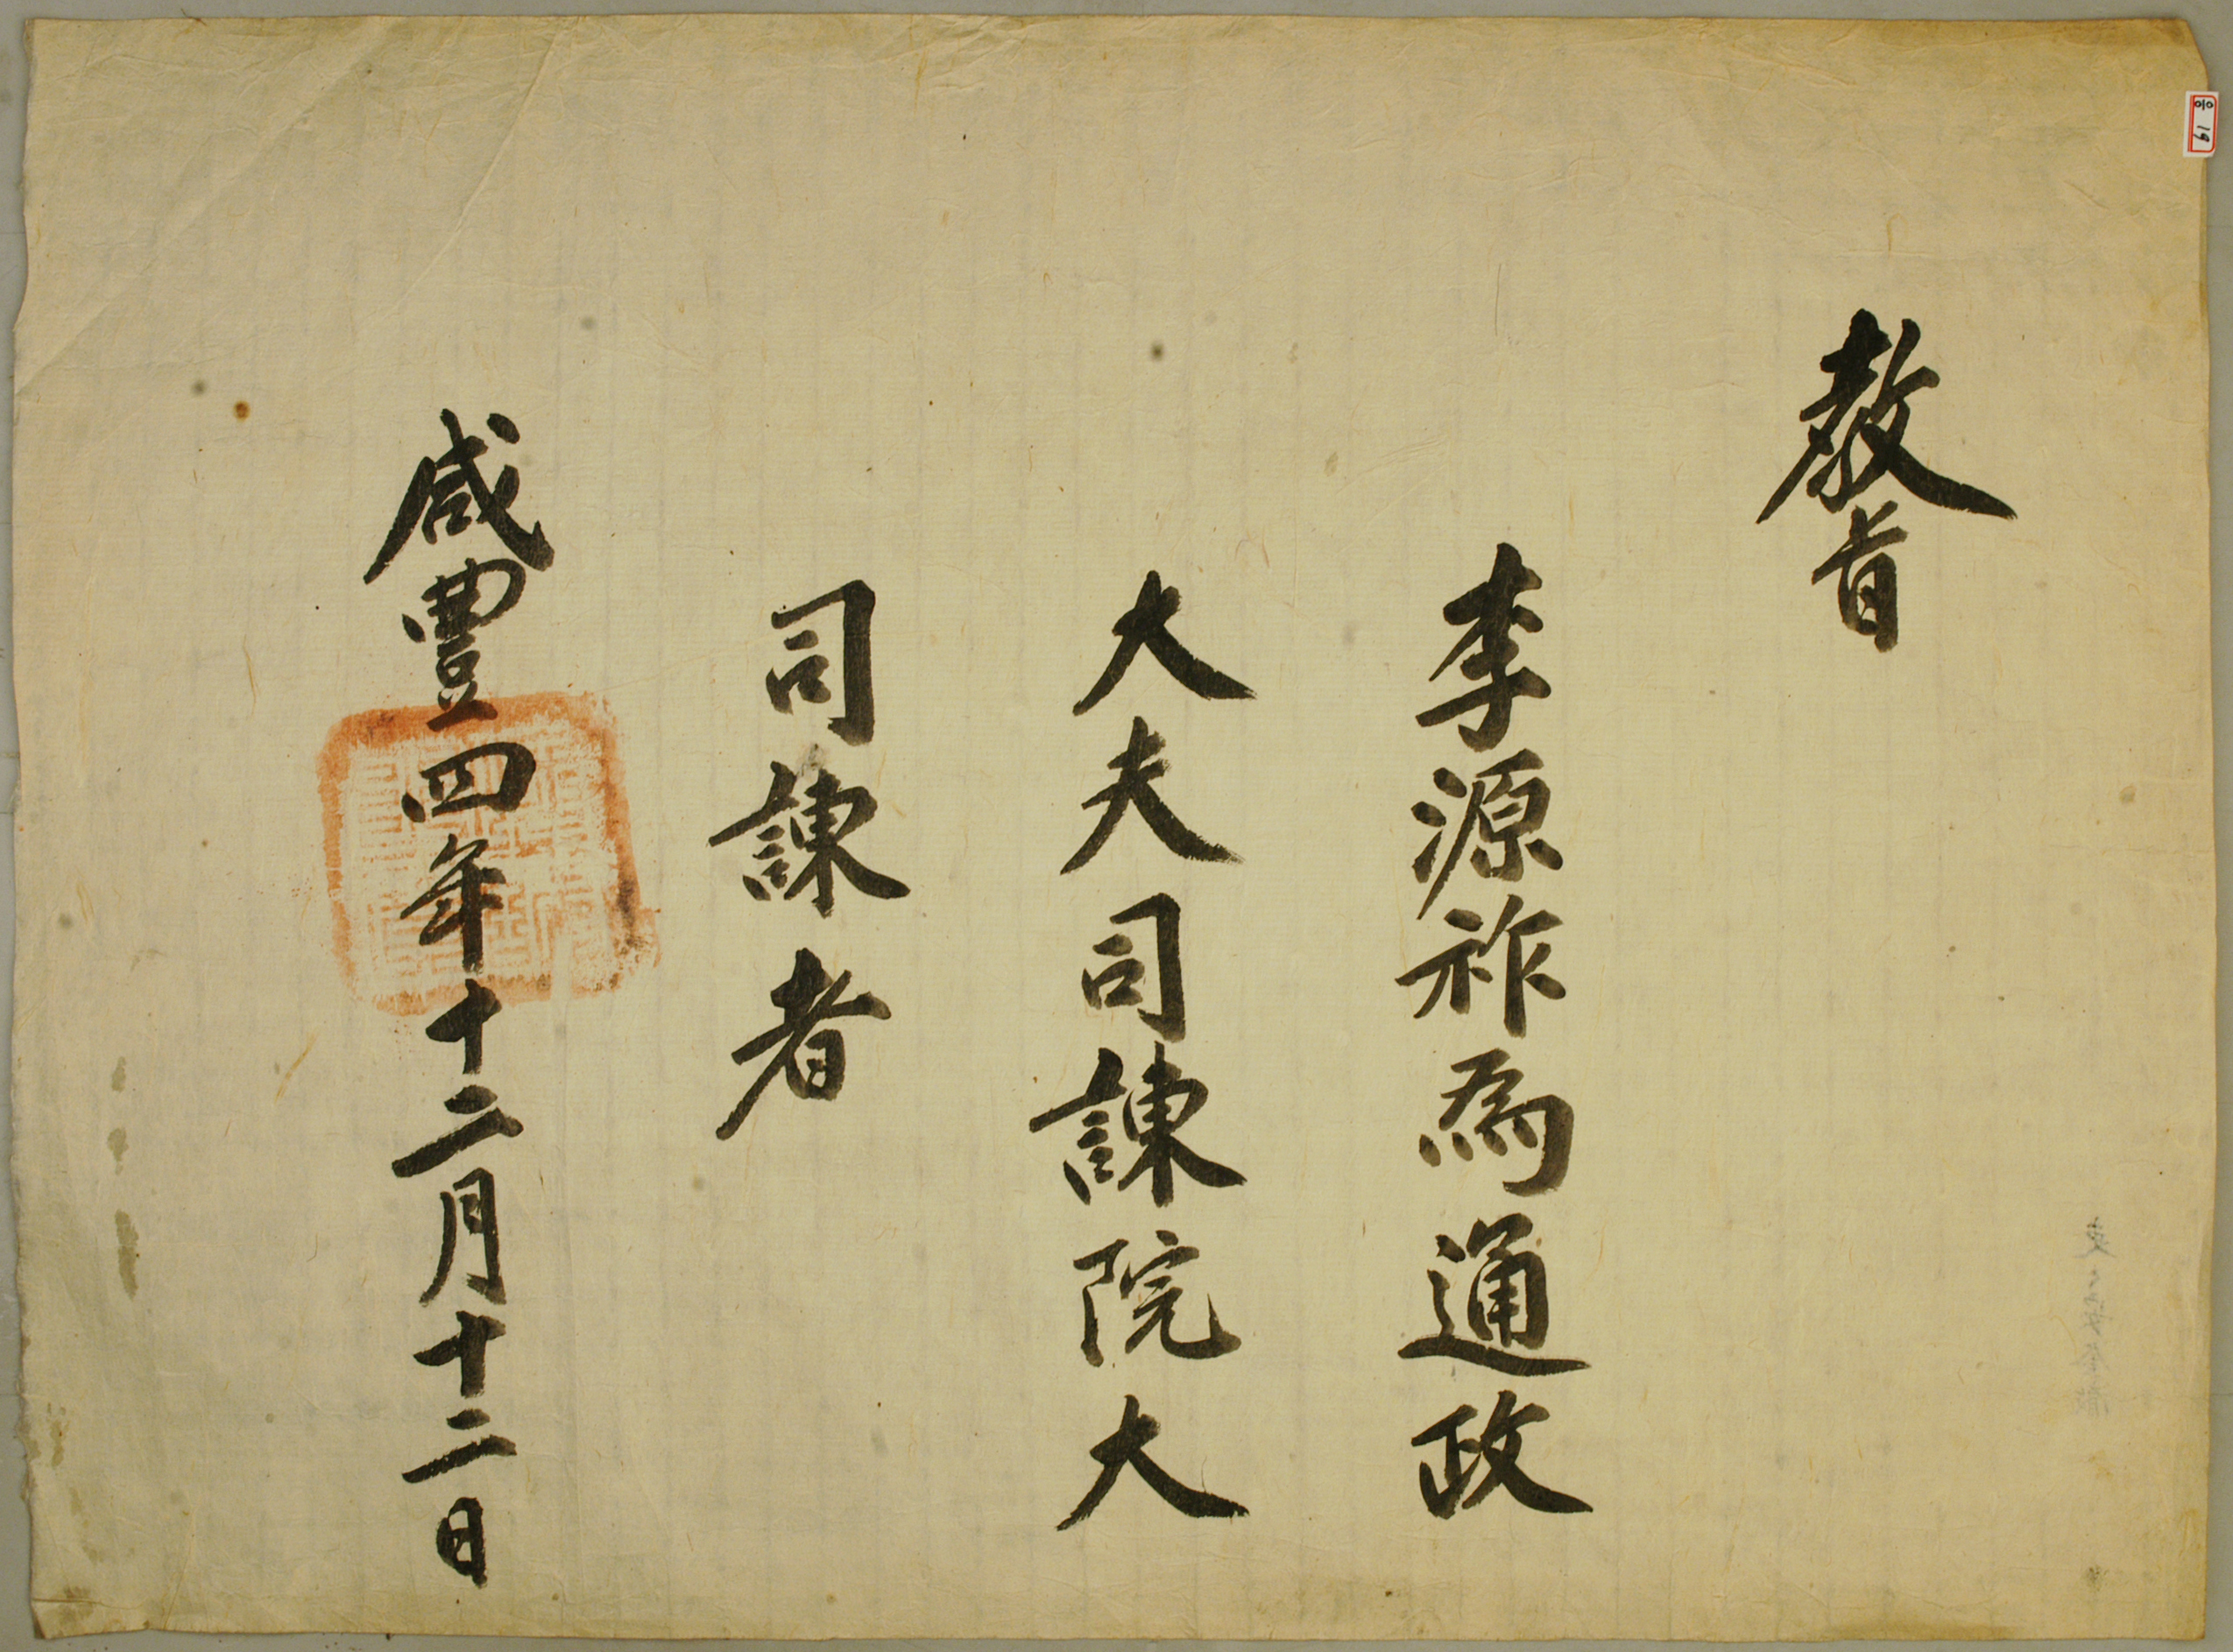 教旨
李源祚為通政
大夫司諫院大
司諫者
咸豐四年十二月十二日
응 19